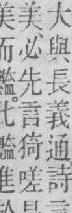 大與長義通詩
美必先言猗嗟
美而豔